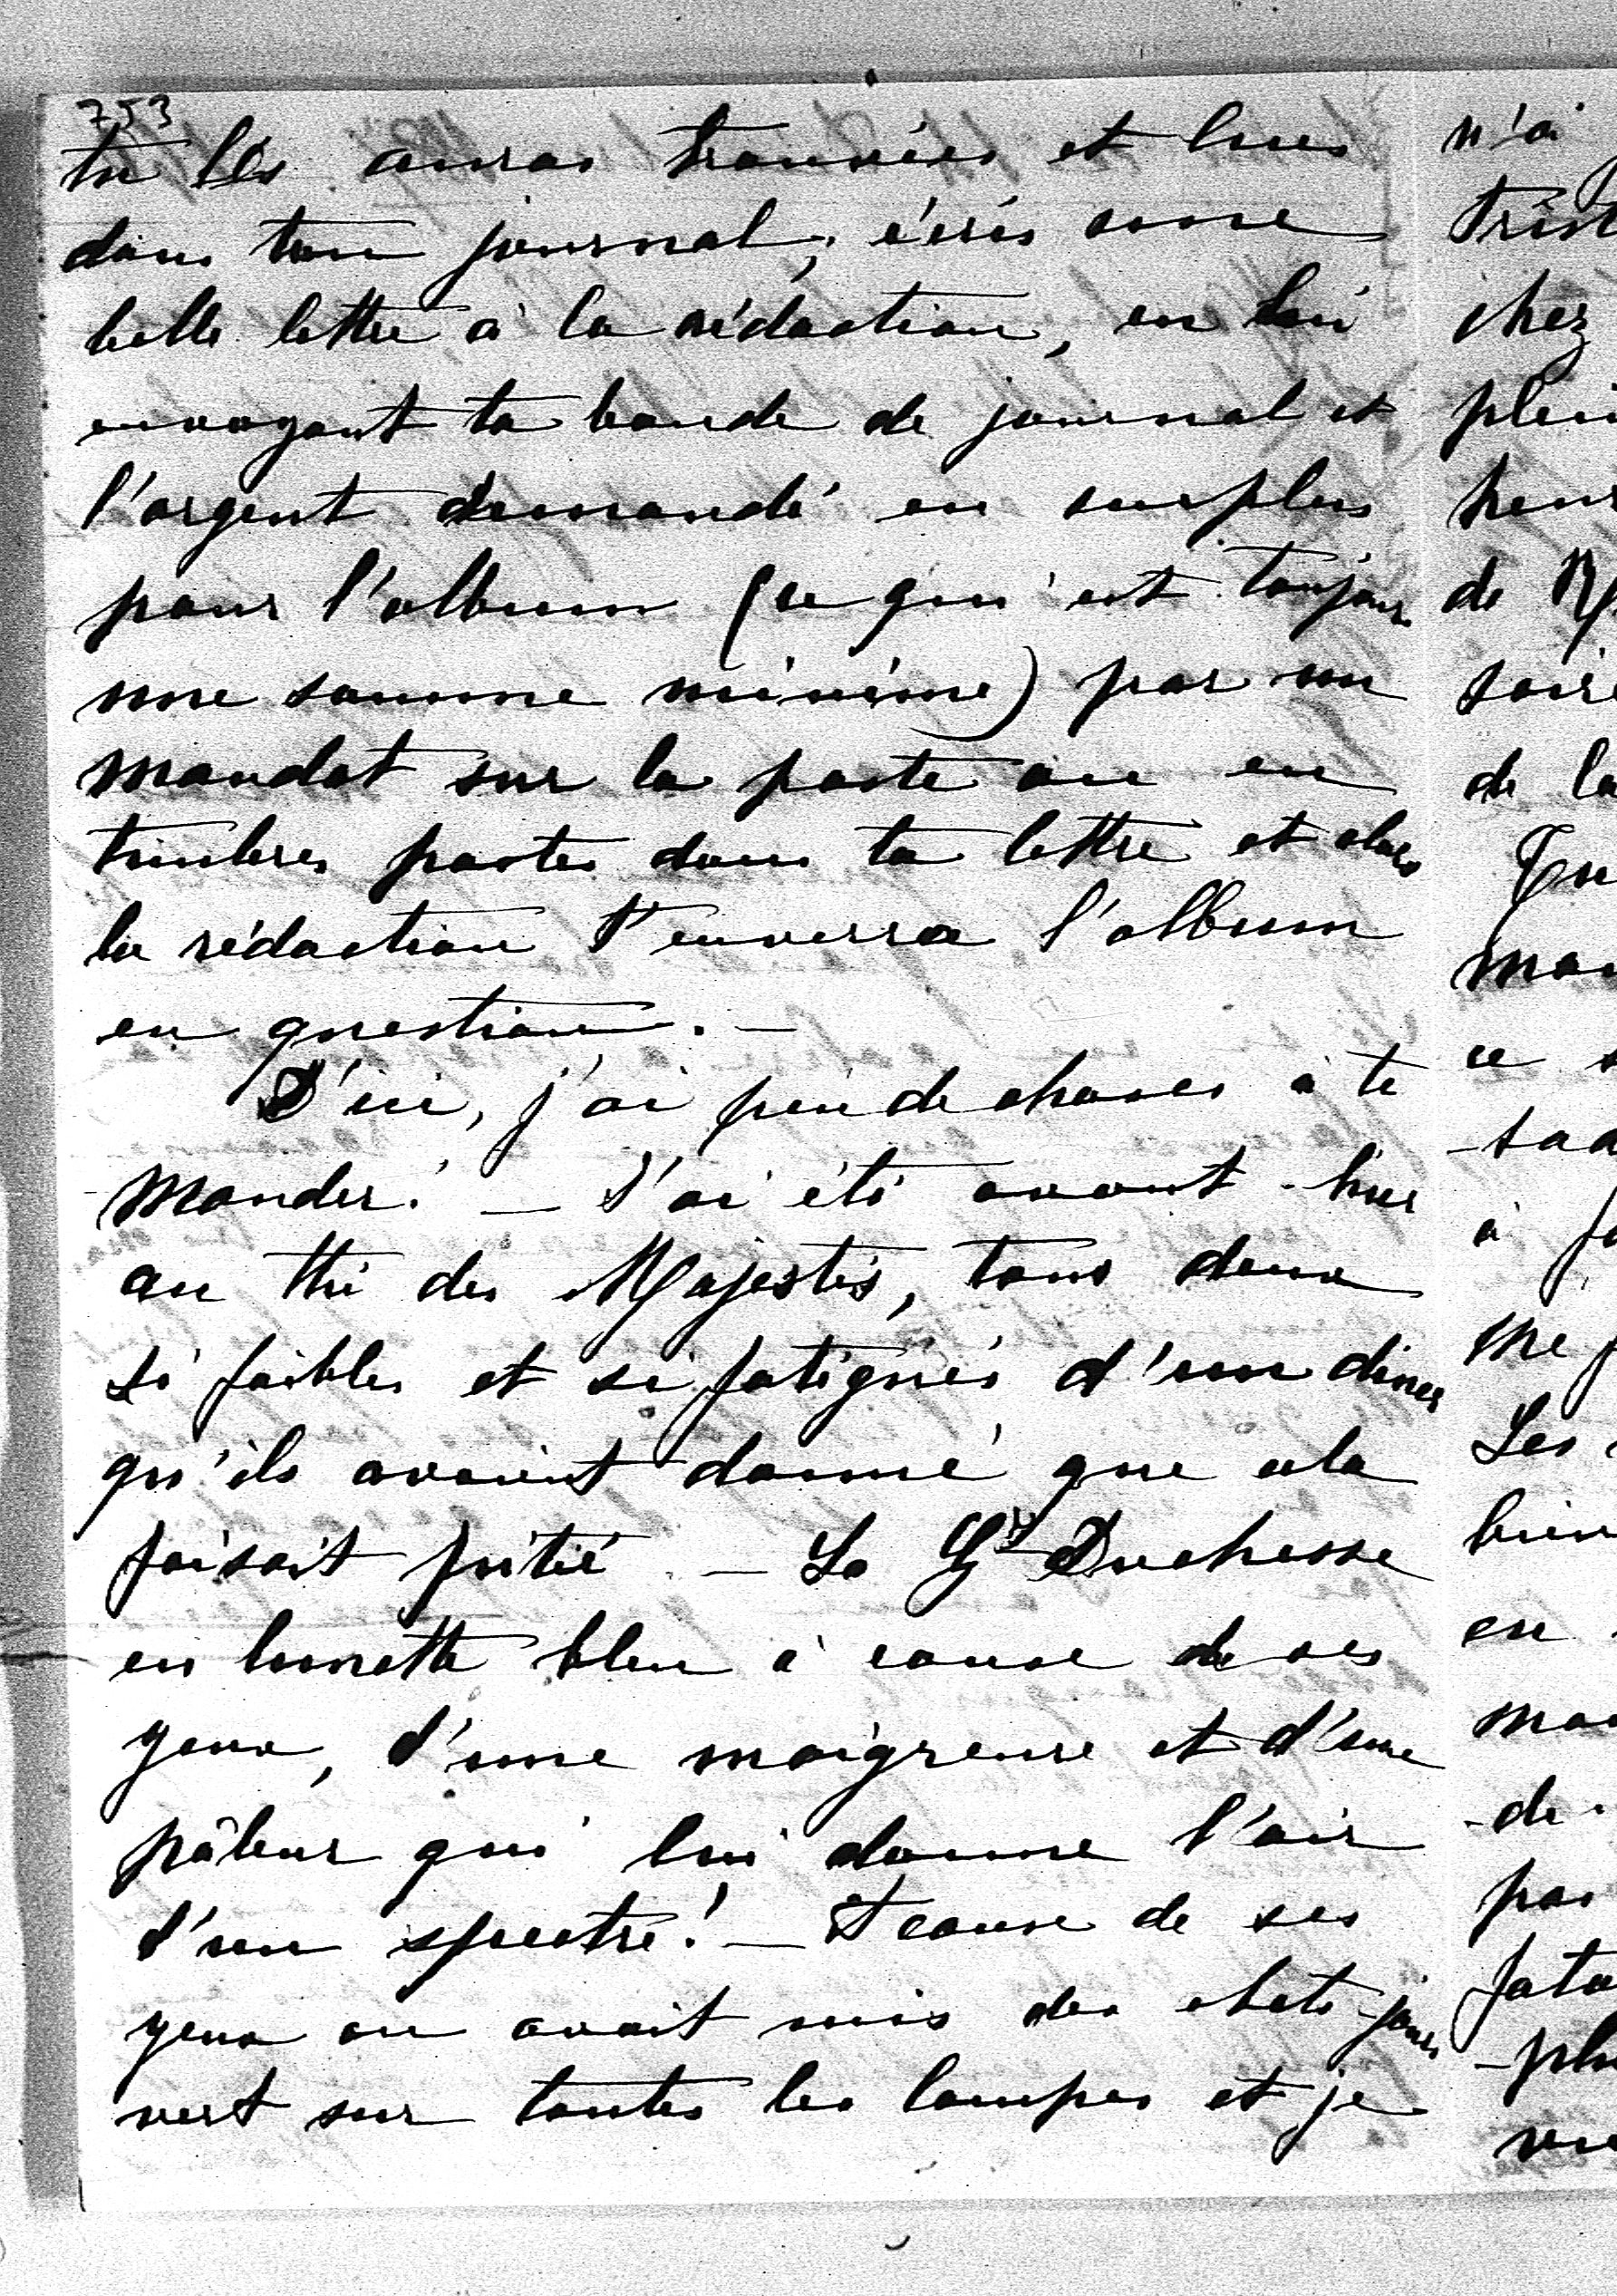 753
tu les auras trouvées et lues
dans ton journal, écris une
belle lettre à la rédaction, en lui
envoyant ta bande de journal et
l'argent demandé en surplus
pour l'album (ce qui est toujours
une somme minime) par un
mandat sur la poste ou en
timbres postes dans ta lettre et alors
la rédaction t'enverra l'album
en question. —
D'ici, j'ai peu de choses à te
mander! — J'ai été avant-hier
au thé des Majestés, tous deux
si faibles et si fatigués d'un diner
qu'ils avaient donné que cela
faisait pitié. — La Gde Duchesse
en lunette bleu à cause de ses
yeux, d'une maigreure et d'une
pâleur qui lui donne l'air
d'un spectre! — A cause de ses
yeux on avait mis des abats-jours
vert sur toutes les lampes et je
n'ai
Trist
chez
plei
heur
de
soire
de la
mon
ce s
à
me
Les
bien
en
mon
de
pas